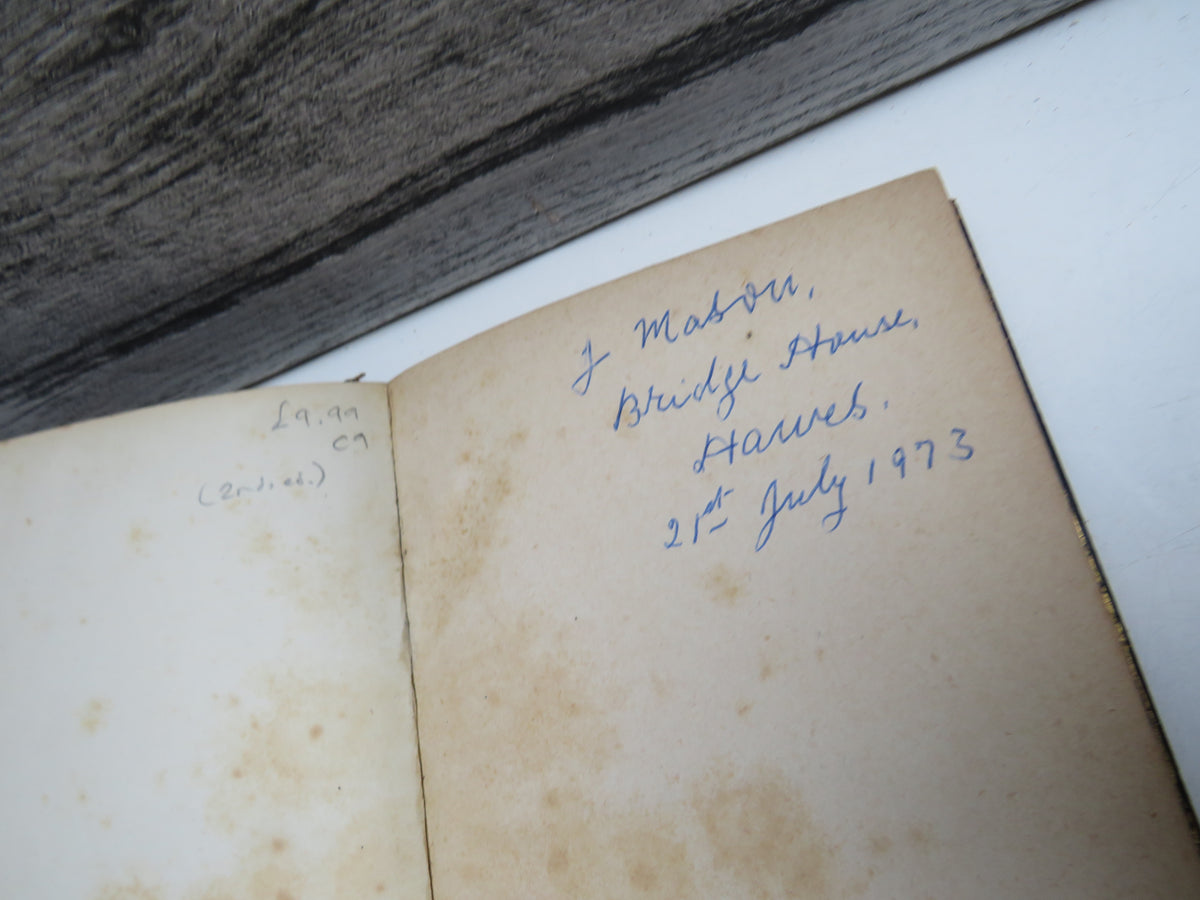 £9.99
C9
(2nd. ed.)
J Mason,
Bridge House,
Hawes.
21st July 1973